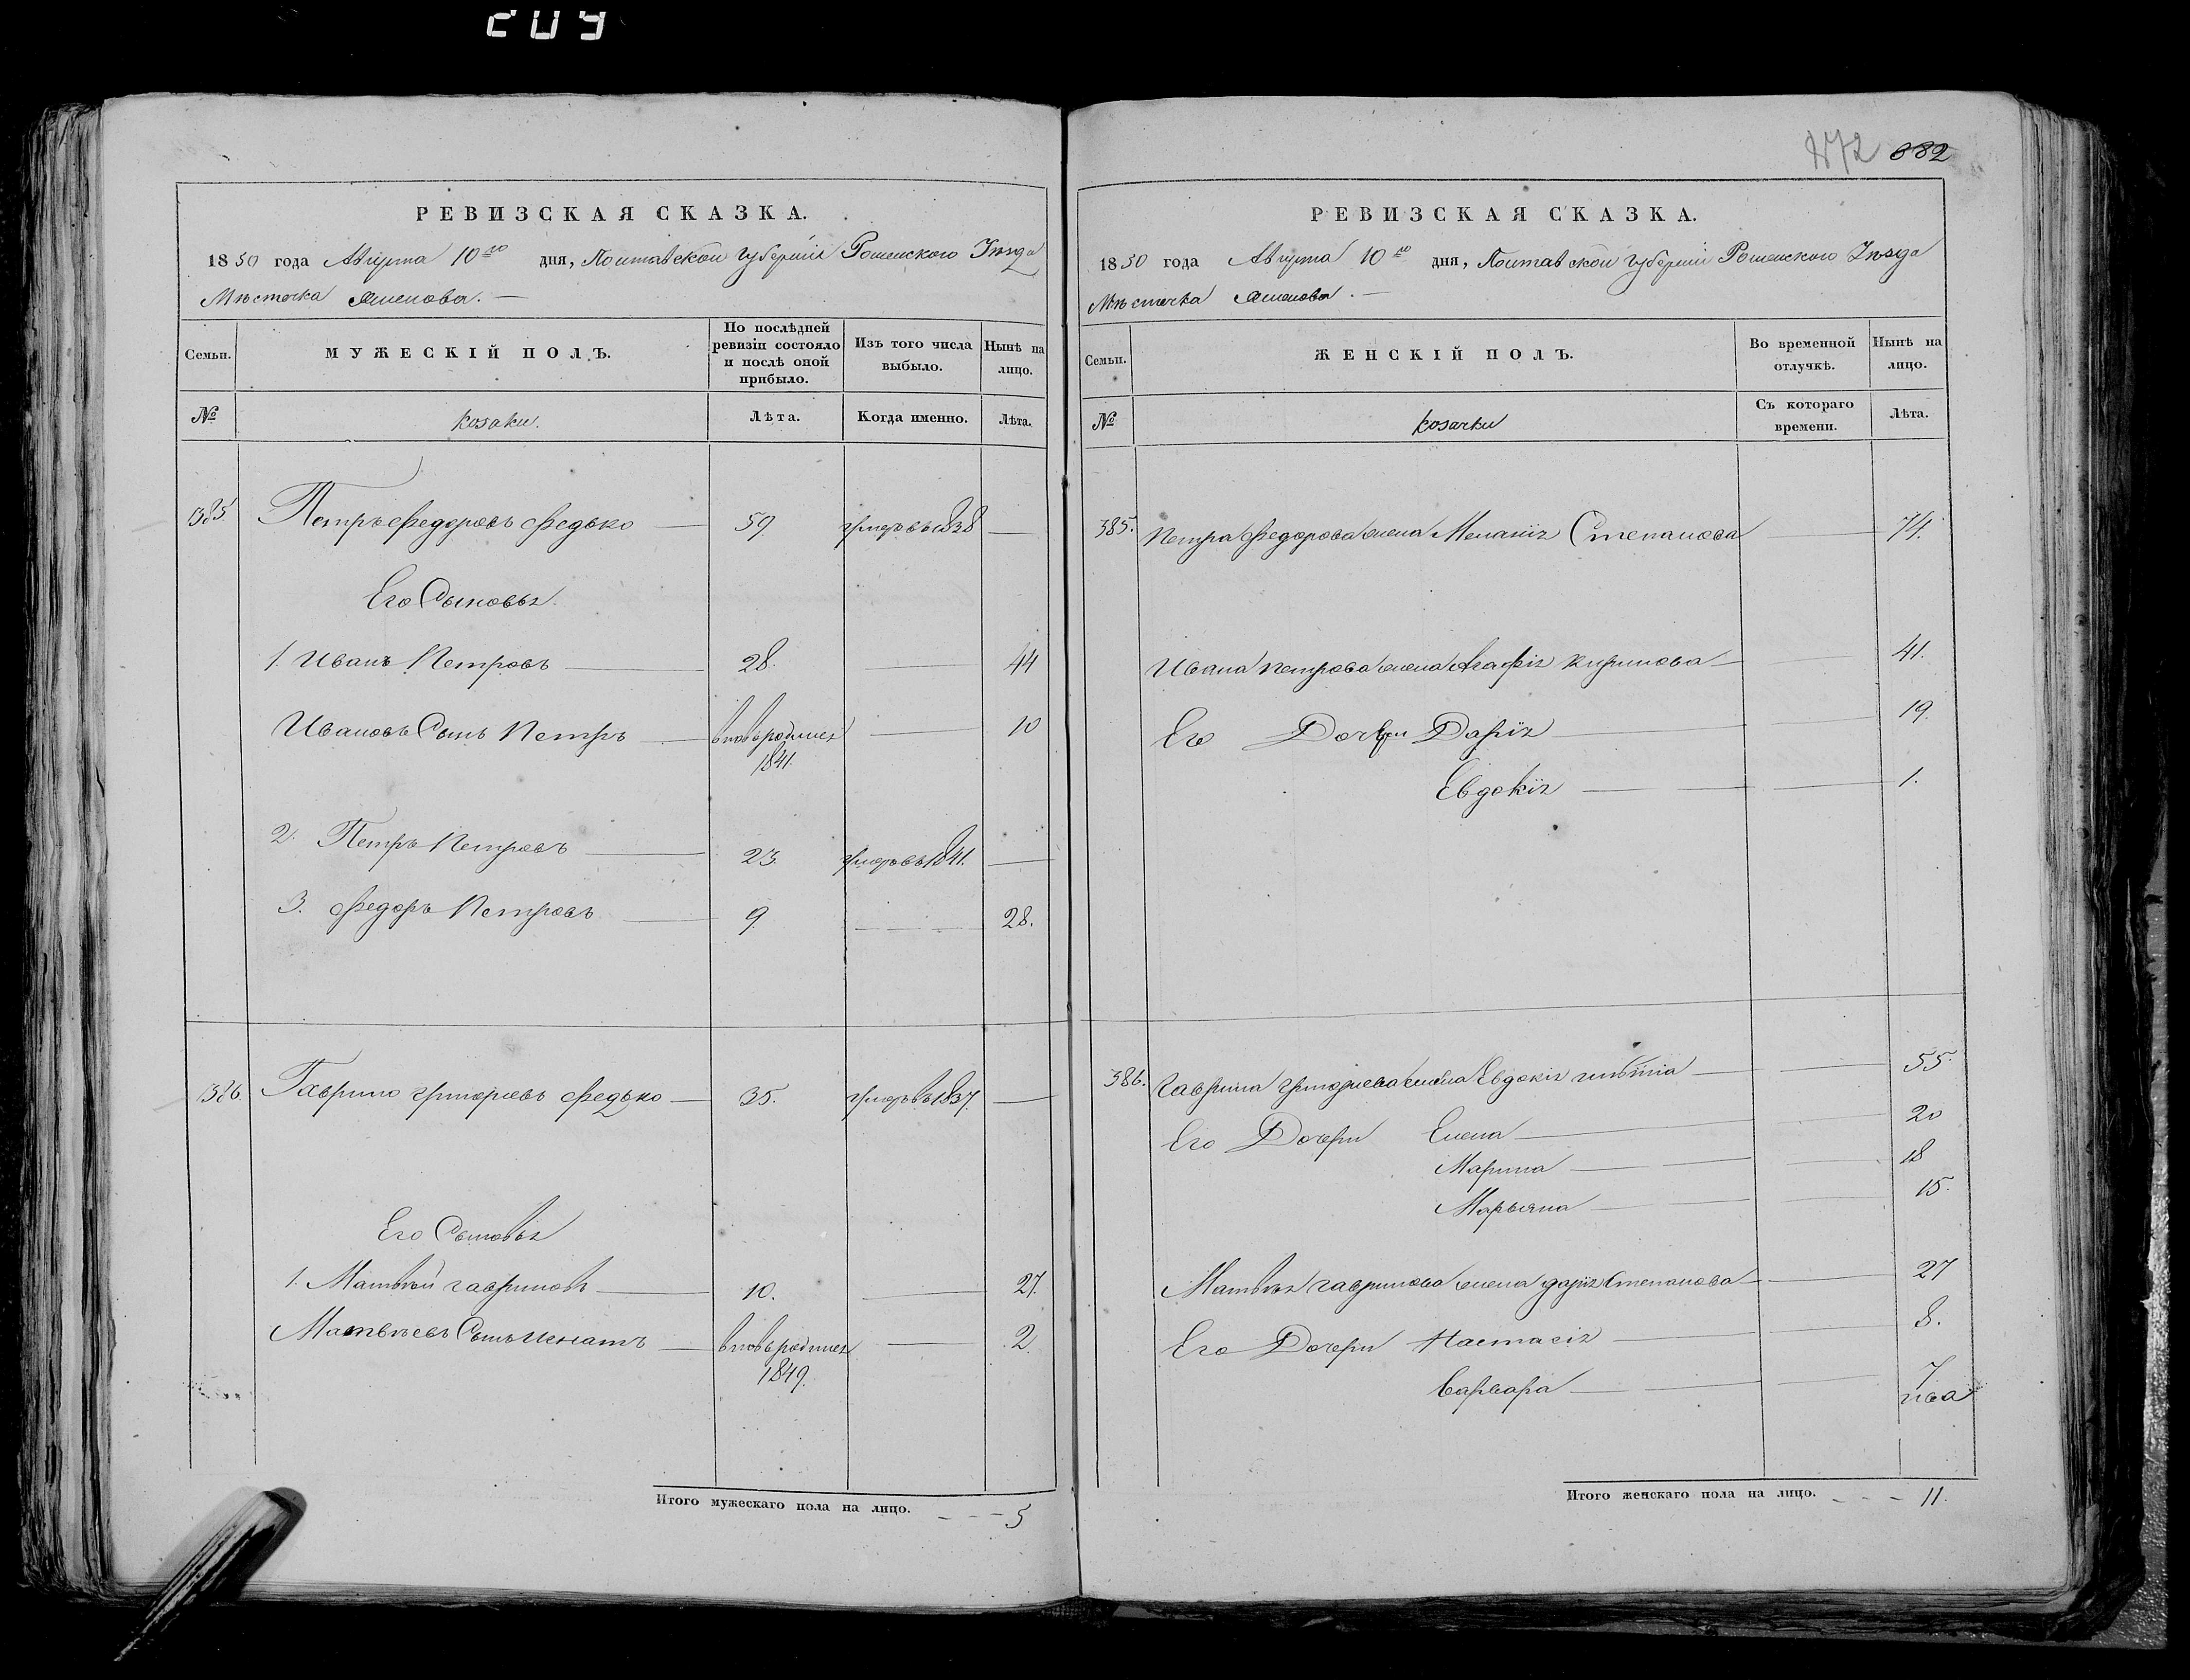 209
РЕВИЗСКАЯ СКАЗКА.
1850 года Августа 10го дня, Полтавской губернии Роменского Уѣзда
Мѣстечка Смелова. —
Семьи.
МУЖЕСКІЙ ПОЛЪ.
По послѣдней ревизіи состояло и послѣ оной прибыло.
Изъ того числа выбыло.
Нынѣ на лицо.
№
козаки.
Лѣта.
Когда именно.
Лѣта.
385 Петръ Федоровъ Федько — 59. умеръ въ 1838 —
Его Сыновья
1. Иванъ Петровъ — 28. — 44
Ивановъ Сынъ Петръ — вновьродился — 10
1841.
2. Петръ Петровъ — 23. умеръ въ 1841. —
3. Федоръ Петровъ — 9. — 28.
386. Гаврило Григориевъ Федько — 35. умеръ въ 1837. —
Его Сыновья
1. Матвѣй Гавриловъ — 10. — 27.
Матвѣевъ Сынъ Игнатъ — вновьродился — 2.
1849.
Итого мужескаго пола на лицо. - - - 5
472 882
РЕВИЗСКАЯ СКАЗКА.
1850 года Августа 10го дня, Полтавской губернии Роменского Уѣзда
Мѣстечка Смелова. —
Семьи.
ЖЕНСКІЙ ПОЛЪ.
Во временной отлучкѣ.
Нынѣ на лицо.
№
козачки
Съ котораго времени.
Лѣта.
385. Петра Федорова жена Меланія Степанова — 74.
Ивана Петрова жена Агафія Кирилова — 41.
Его Дочери Дарія — 19.
Евдокія — 1.
386. Гаврила Григориева жена Евдокія — 55.
Его Дочери Елена — 20
Марина — 18
Марьяна — 15.
Матвѣя Гаврилова жена Дарія Степанова — 27
Его Дочери Настасія — 8.
Варвара — 7
Итого женскаго пола на лицо. - - - 11.